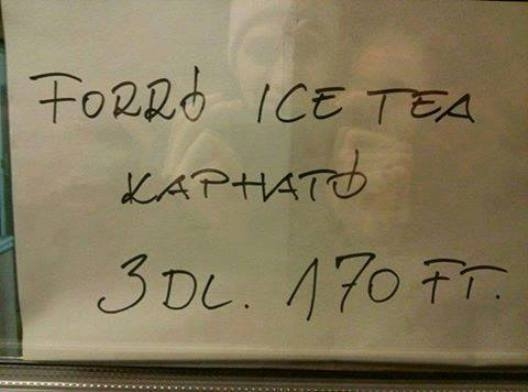 FORRÓ ICE TEA
KAPHATÓ
3 DL. 170 FT.